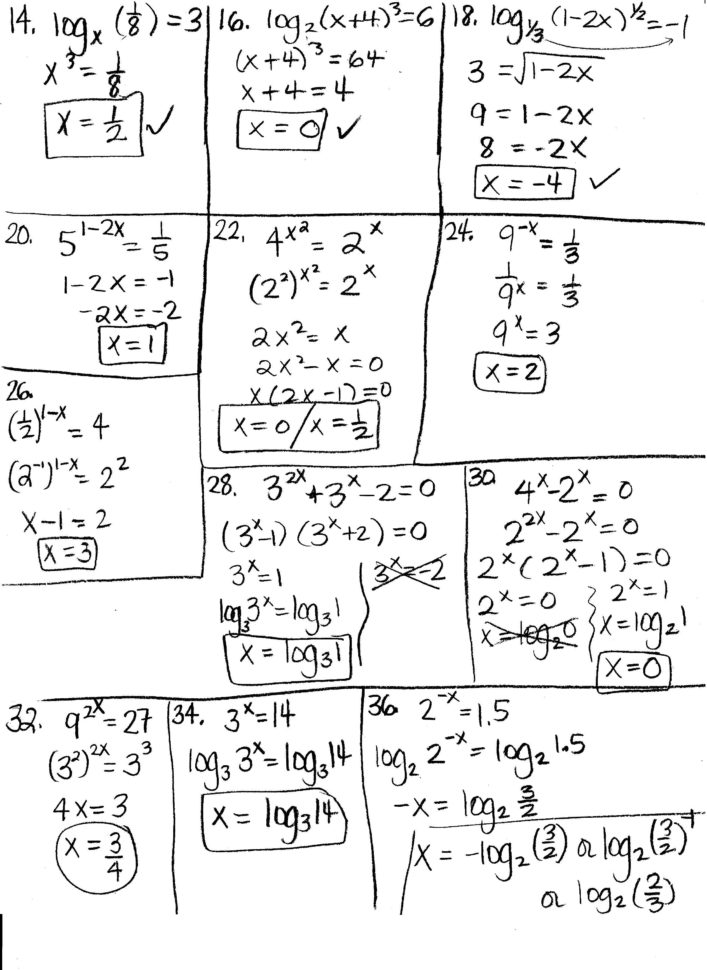 14. logₓ(1/8) = 3
x³ = 1/8
x = 1/2 ✓
16. log₂(x+4)³ = 6
(x+4)³ = 64
x+4 = 4
x = 0 ✓
18. log_{1/3}(1-2x)^{1/2} = -1
3 = √(1-2x)
9 = 1-2x
8 = -2x
x = -4 ✓
20. 5^{1-2x} = 1/5
1-2x = -1
-2x = -2
x = 1
22. 4^{x²} = 2^x
(2²)^{x²} = 2^x
2x² = x
2x² - x = 0
x(2x-1) = 0
x = 0 / x = 1/2
24. 9^{-x} = 1/3
1/9^x = 1/3
9^x = 3
x = 2
26.
(1/2)^{1-x} = 4
(2^{-1})^{1-x} = 2²
x-1 = 2
x = 3
28. 3^{2x} + 3^x - 2 = 0
(3^x-1) (3^x+2) = 0
3^x = 1 3^x = -2
log₃3^x = log₃1
x = log₃1
30. 4^x - 2^x = 0
2^{2x} - 2^x = 0
2^x(2^x-1) = 0
2^x = 0 2^x = 1
x = log₂0 x = log₂1
x = 0
32. 9^{2x} = 27
(3²)^{2x} = 3³
4x = 3
x = 3/4
34. 3^x = 14
log₃3^x = log₃14
x = log₃14
36. 2^{-x} = 1.5
log₂ 2^{-x} = log₂ 1.5
-x = log₂ 3/2
x = -log₂(3/2) or log₂(3/2)^{-1}
or log₂(2/3)